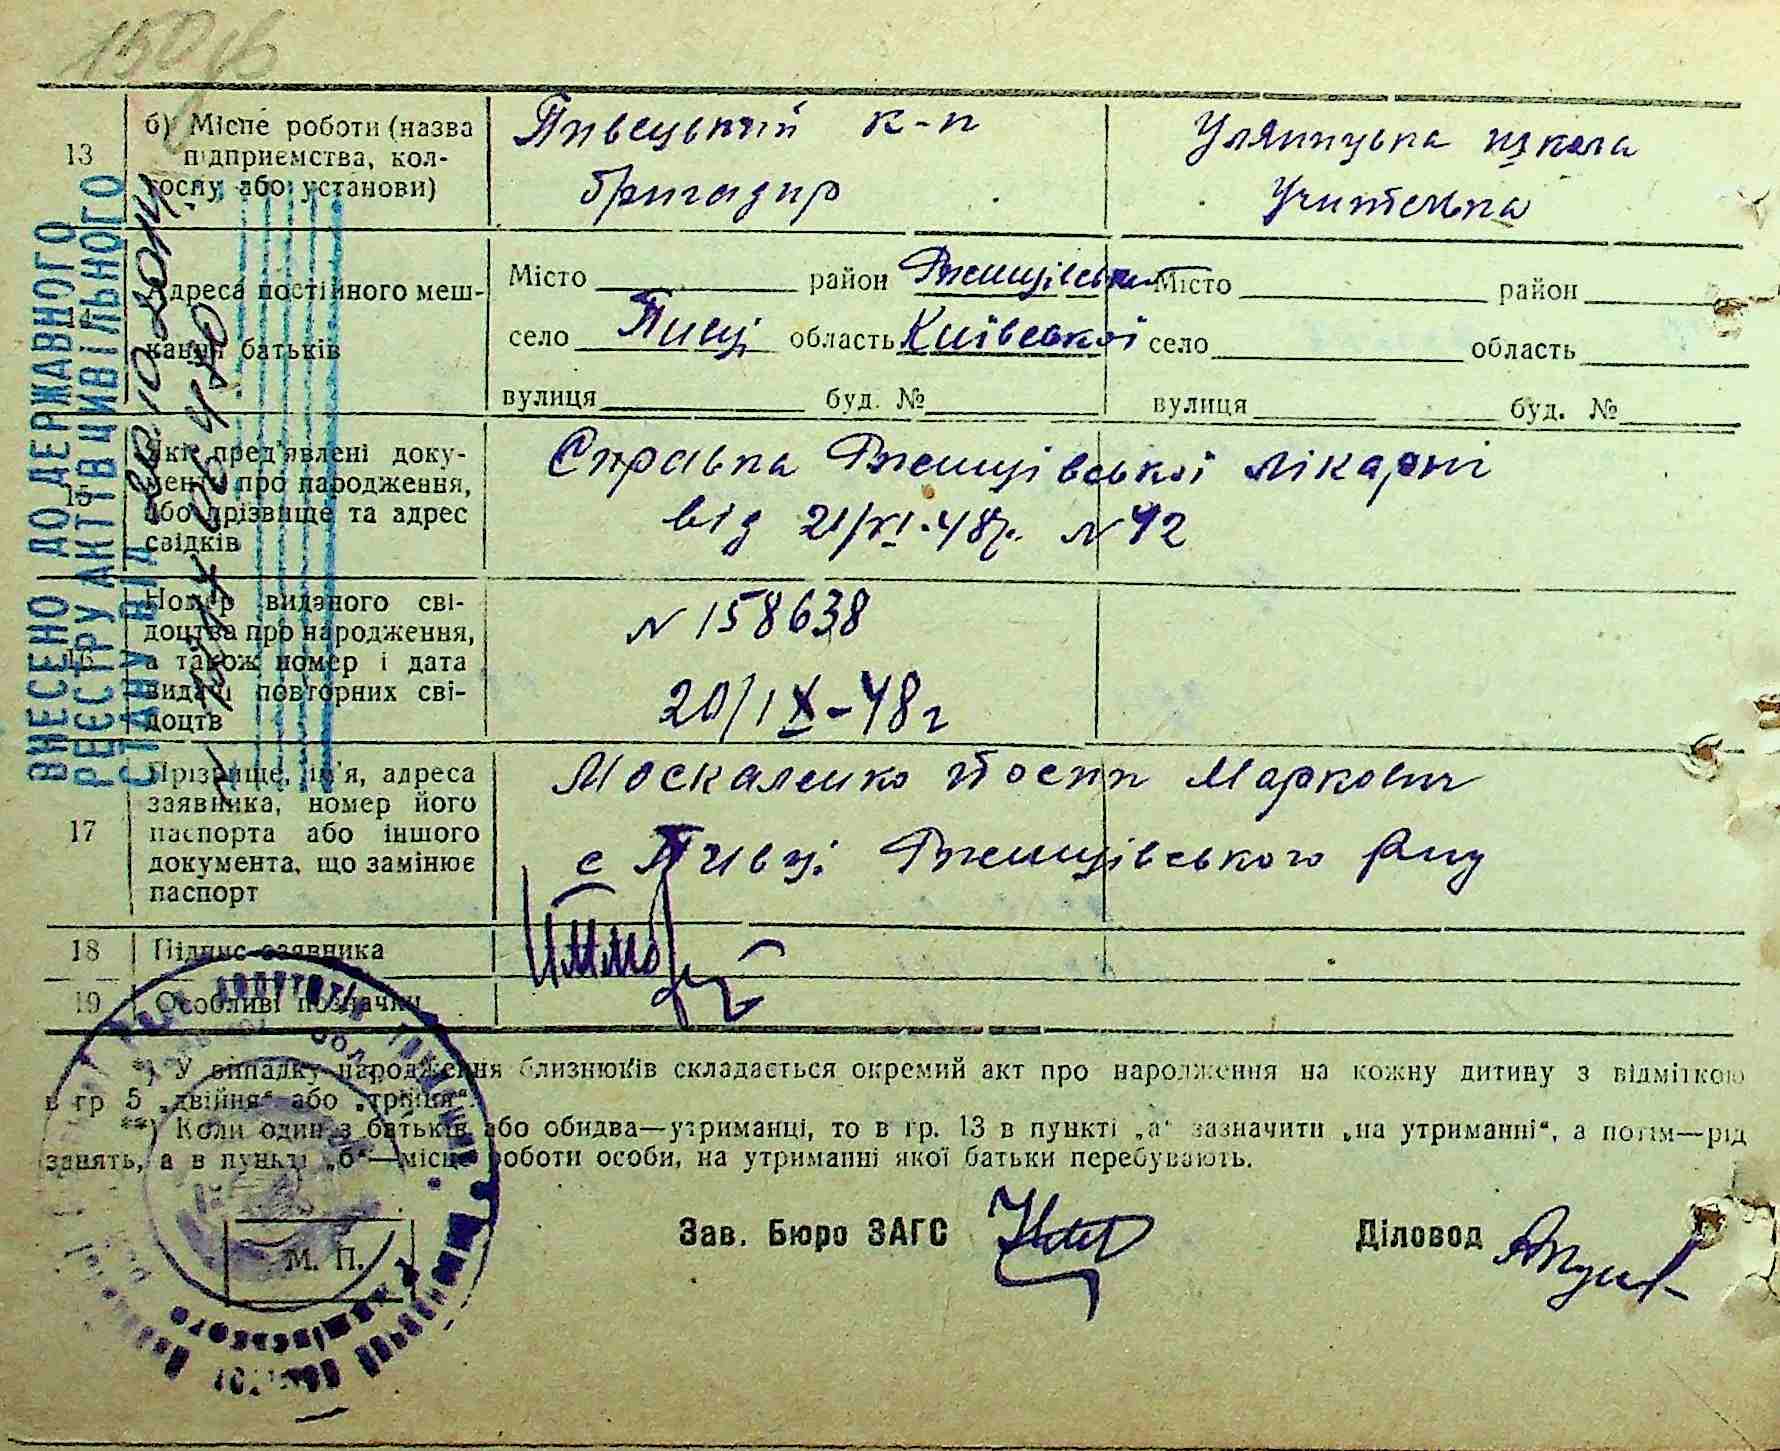 150 зв
13 б) Місце роботи (назва Пивецький к-п Уляницька школа
підприємства, кол-
госпу, або установи) бригадир Учителька
14 Адреса постійного меш- Місто район Ржищівськи Місто район
канця батьків село Пивці область Київської село область
вулиця буд. № вулиця буд. №
15 Які пред'явлені доку- Справка Ржищівської лікарні
менти про народження,
або прізвище та адрес від 21/XI-48р. N 42
свідків
16 Номер виданого сві- N 158638
доцтва про народження,
а також номер і дата
видачі повторних сві- 20/IX-48 г
доцтв
17 Прізвище, ім'я, адреса Москаленко Йосип Маркович
заявника, номер його
паспорта або іншого с Пивці Ржищівського р-ну
документа, що замінює
паспорт
18 Підпис заявника
19 Особливі позначки
*) У випадку народження близнюків складається окремий акт про народження на кожну дитину з відміткою
в гр 5 „двійня“ або „трійня“.
**) Коли один з батьків або обидва—утриманці, то в гр. 13 в пункті „а“ зазначити „на утриманні“, а потім—рід
занять, а в пункті „б“—місце роботи особи, на утриманні якої батьки перебувають.
Зав. Бюро ЗАГС Діловод
М. П.
ВНЕСЕНО ДО ДЕРЖАВНОГО
РЕЄСТРУ АКТІВ ЦИВІЛЬНОГО
СТАНУ ВІД